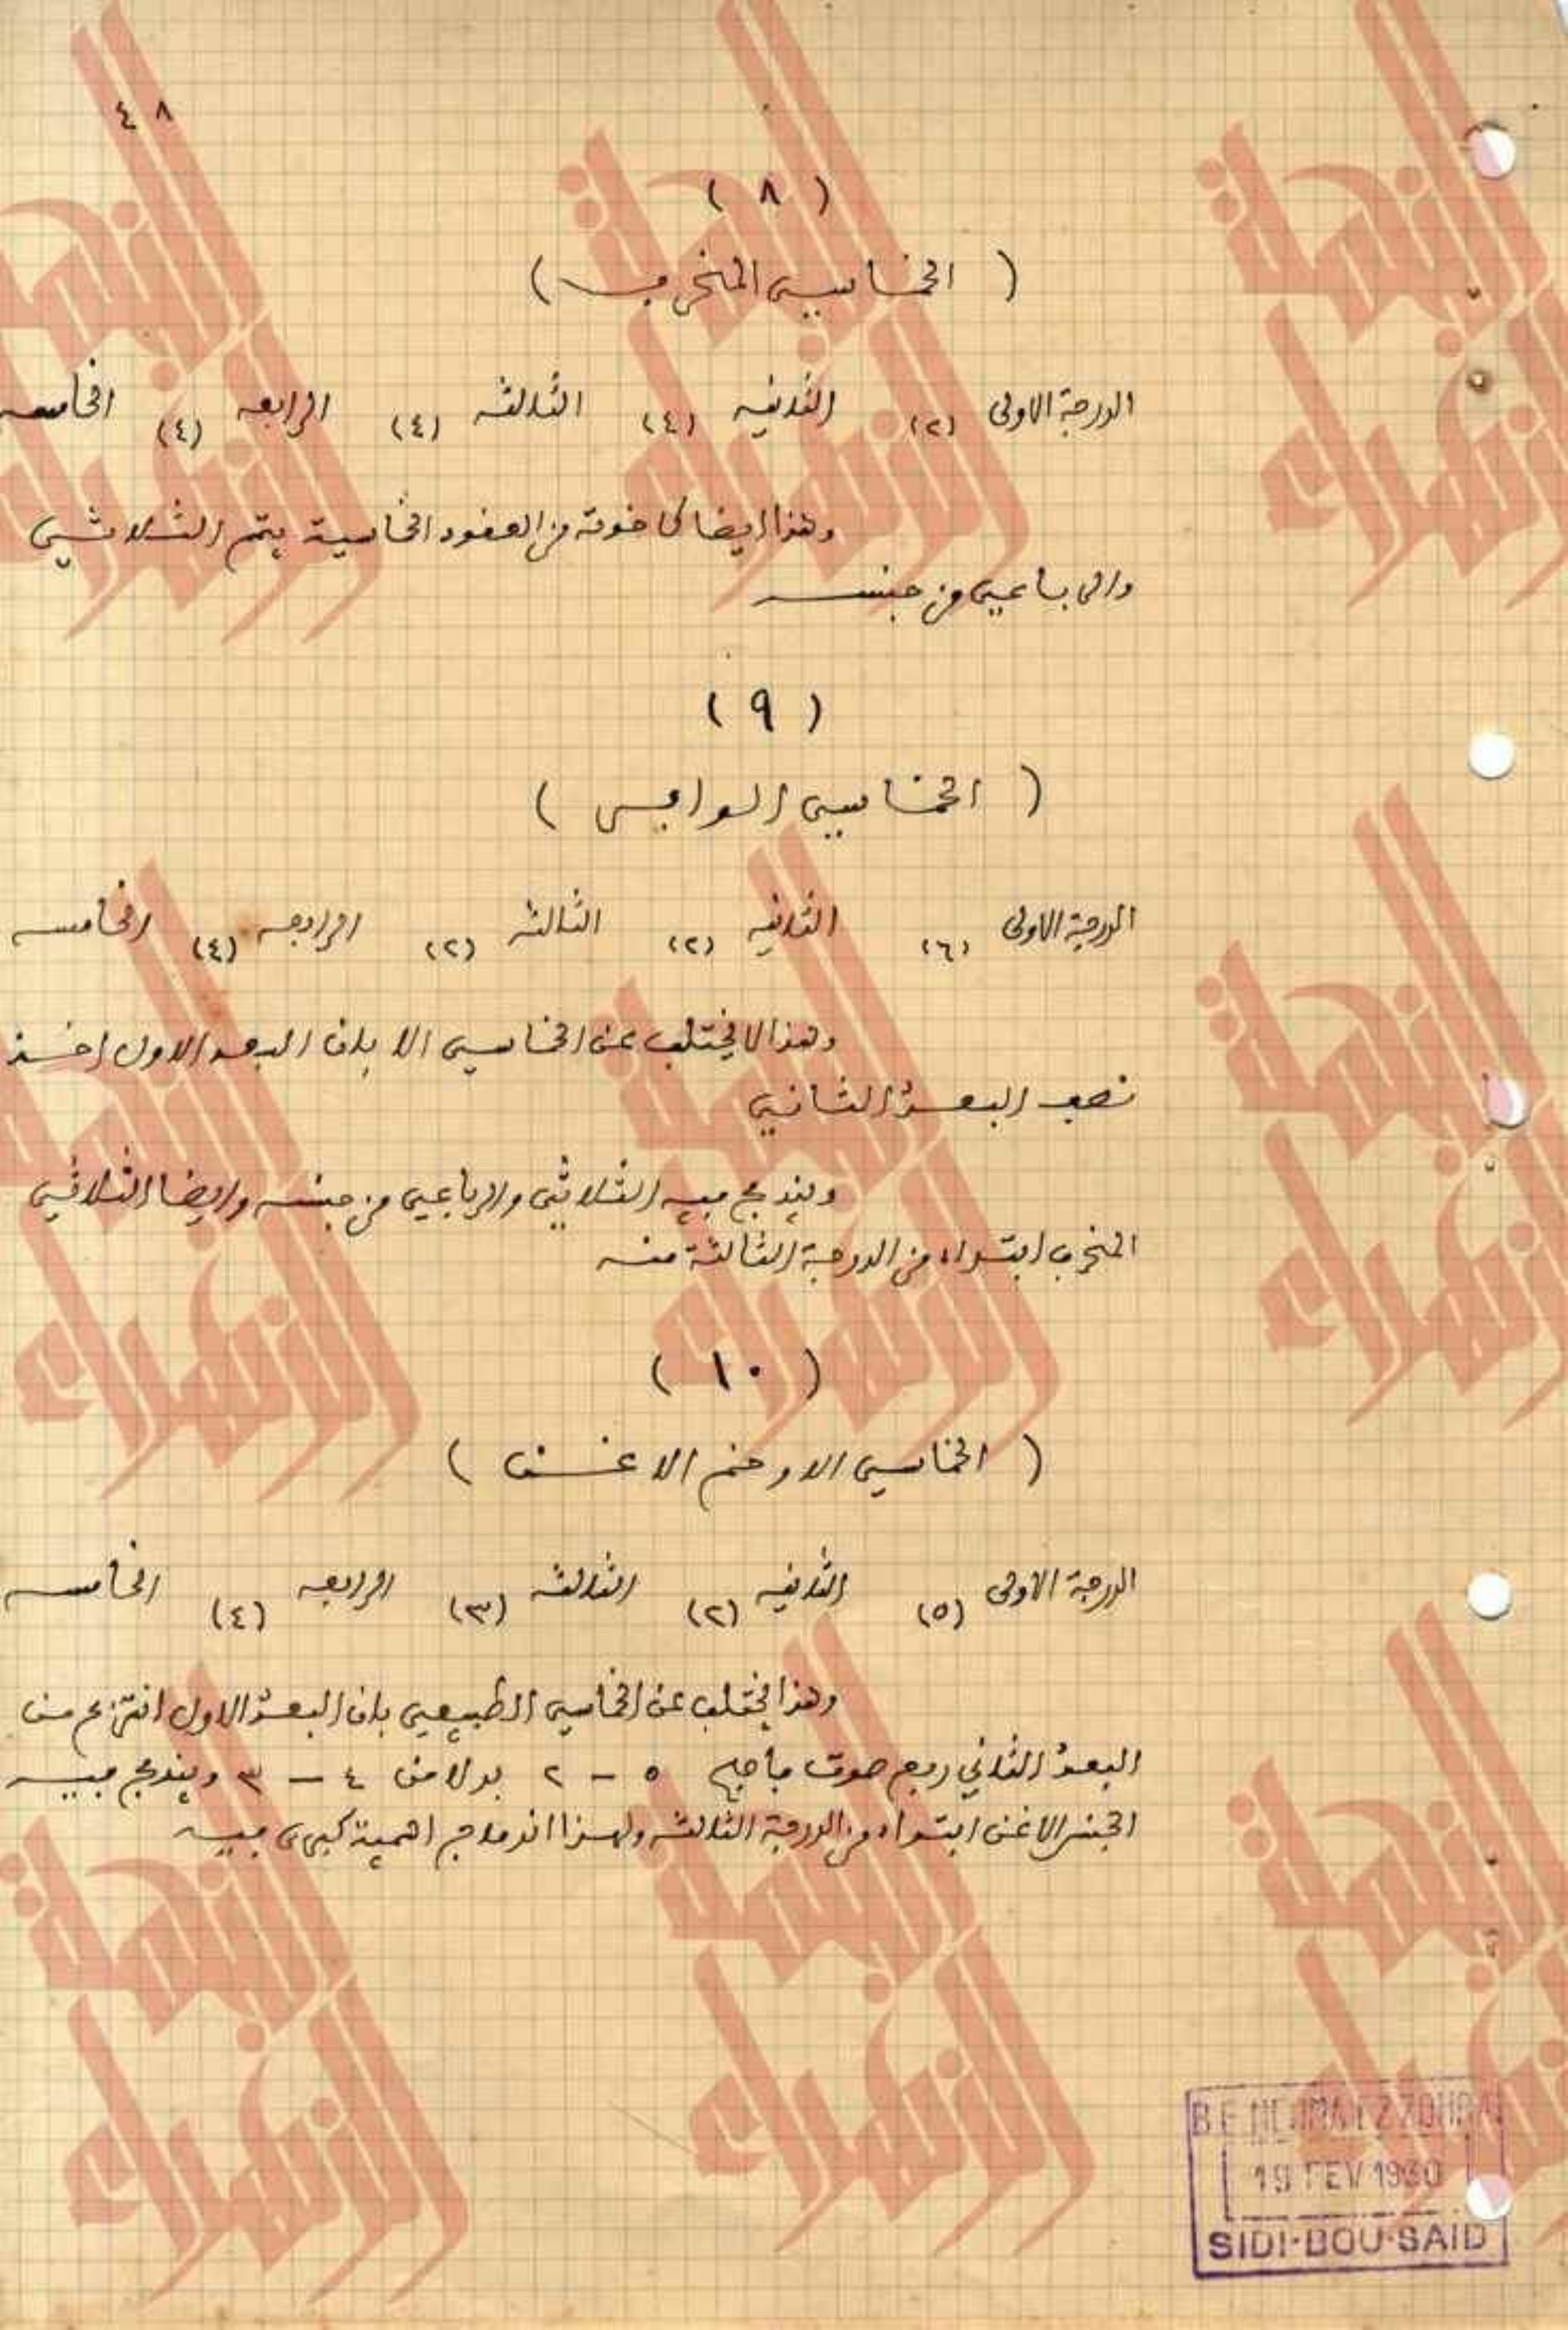 ٤٨
( ٨ )
( الخماسي المنحرف )
الدرجة الاولى (٢) الثانيه (٤) الثالثه (٤) الرابعه (٤) الخامسه
وهذا ايضا كاخوته من العقود الخماسية يتم الثلاثي
والرباعي من جنسه
( ٩ )
( الخماسي الوافي )
الدرجة الاولى (٦) الثانيه (٢) الثالثه (٢) الرابعه (٤) الخامسه
وهذا لا يختلف عن الخماسي الا بان البعد الاول اخذ
نصف البعد الثاني
ويندمج فيه الثلاثي والرباعي من جنسه وايضا الثلاثي
المنحرف ابتداء من الدرجة الثالثة منه
( ١٠ )
( الخماسي الاوخم الاغن )
الدرجة الاولى (٥) الثانيه (٢) الثالثه (٣) الرابعه (٤) الخامسه
وهذا يختلف عن الخماسي الطبيعي بان البعد الاول انتزع من
البعد الثاني ربع صوت فاصبح ٥ - ٢ بدلا من ٤ - ٣ ويندمج فيه
الجنس الاغن ابتداء من الدرجة الثالثه ولهذا اندماج اهمية كبرى فيه
النجمة الزهراء
BE NEJMA EZZOHRA
19 FEV 1930
SIDI-BOU-SAID